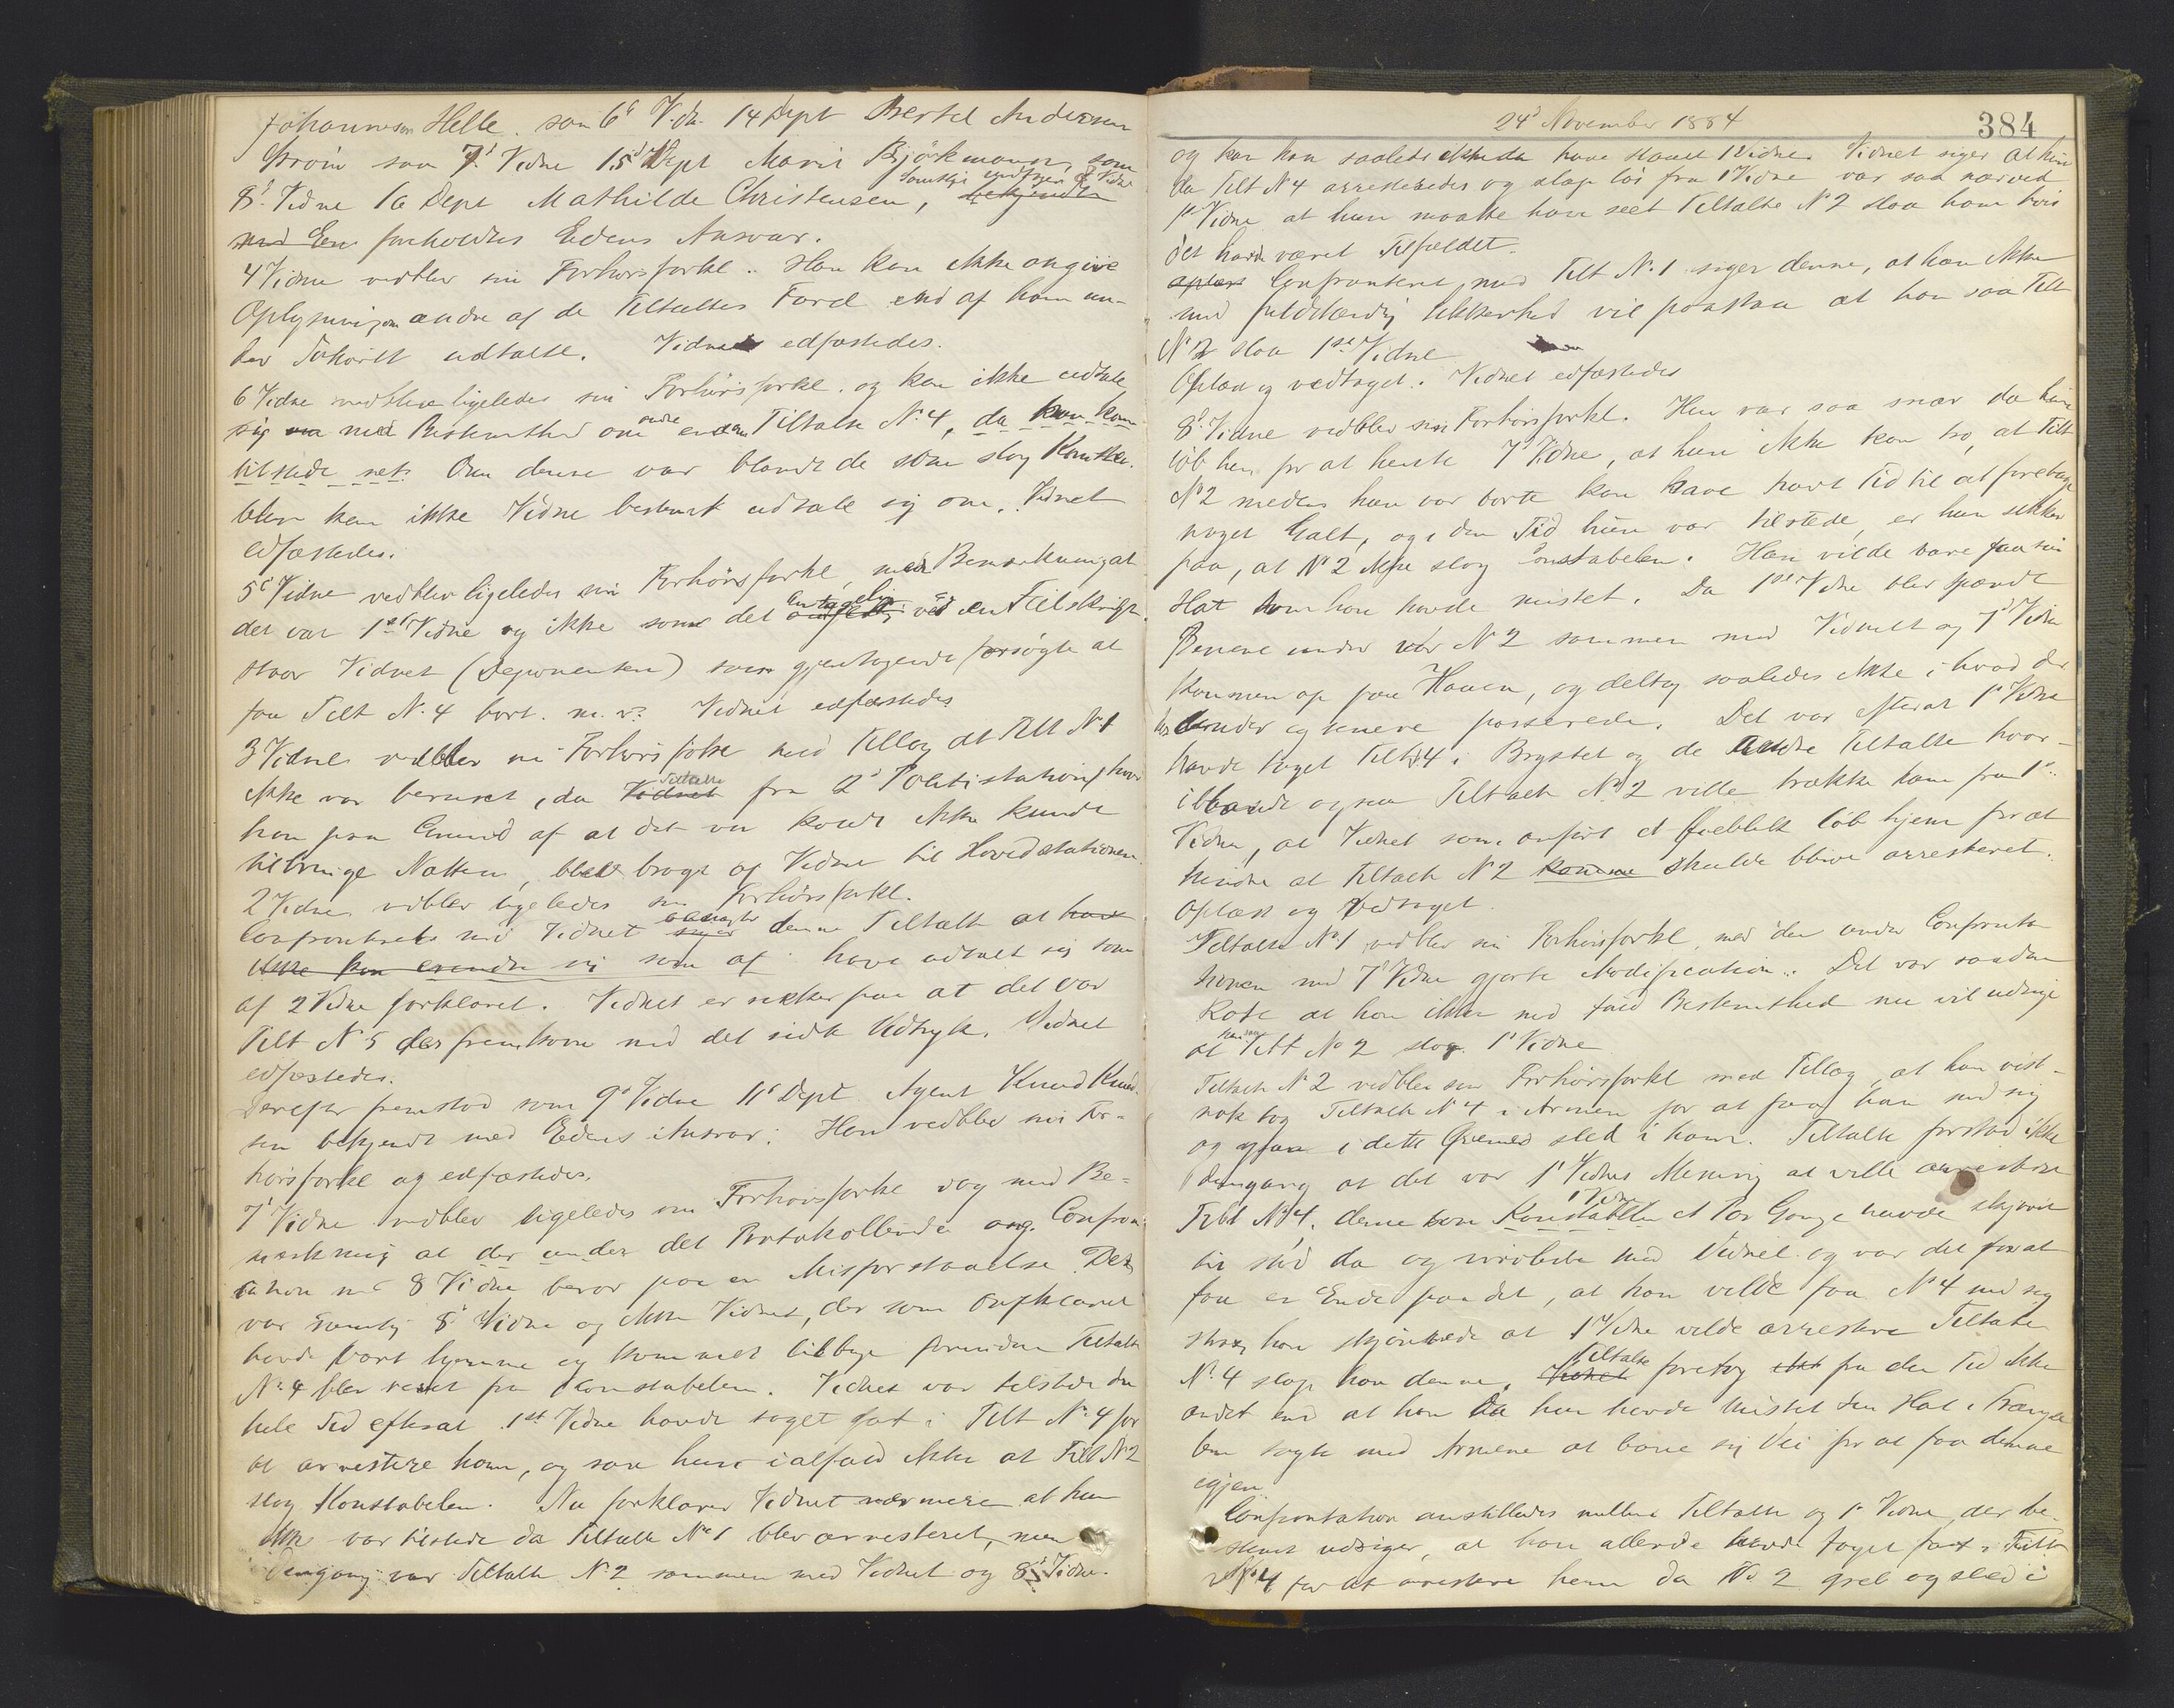 Johannesen Helle som 6' Vidn 14 Dept Bertel Andersen
Strøm som 7' Vidne 15' Dept Marie Björkmann, som
8' Vidne 16 Dept Mathilde Christensen,
forholdtes Edens Ansvar.
4 Vidne vedblev sin Forhørsforkl. Han kan ikke angive
Oplysning om andre af de Tiltaltes Færd end af ham un-
der Forhöret udtalte. Vidnet edfæstedes.
6 Vidne vedblev ligeledes sin Forhörsforkl. og kan ikke udtale
sig med Bestemthed om andre end Tiltalte No. 4, da han kom
tilstede. Om denne var blandt de som slog Konsta-
blen kan ikke Vidne bestemt udtale sig om. Vidnet
edfæstedes.
5' Vidne vedblev ligeledes sin Forhörsforkl, med Bemærkning at
det var 1ste Vidne og ikke som det antagelig ved en Feilskrift
staar Vidnet (Deponenten) som gjentagende forsögte at
faa Tilt N. 4 bort. m. v. Vidnet edfæstedes
3 Vidne vedblev sin Forhörsforkl med Tillæg at Tilt No 1
ikke var beruset, da Tiltalte fra 2' Politistation, hvor
han paa Grund af at det var koldt ikke kunde
tilbringe Natten, blev bragt af Vidnet til Hovedstationen.
2 Vidne vedblev ligeledes sin Forhörsforkl.
Confronteret med Vidnet benægter denne Tiltalte at have
ikke kan erindre sig som af have udtalt sig som
af 2 Vidne forklaret. Vidnet er sikker paa at det var
Tilt N 5 der fremkom med det sidste Udtryk. Vidnet
edfæstedes.
Derefter fremstod som 9' Vidne 11' Dept. Agent Knud Knud-
sen bekjendt med Edens Ansvar. Han vedblev sin For-
hörsforkl og edfæstedes.
7' Vidne vedblev ligeledes sin Forhörsforkl dog med Be-
mærkning at der under det Protokollerede ang. Confron-
tation med 8 Vidne beror paa en Misforstaaelse. Det
var nemlig 8' Vidne og ikke Vidnet, der som forklaret
havde været hjemme og kommet tilbage forinden Tiltalte
No 4 blev revet fra Konstabelen. Vidnet var tilstede den
hele Tid efterat 1st Vidne havde taget fat i Tilt No. 4 for
at arrestere ham, og saa hun ialfald ikke at Tilt N 2
slog Konstabelen. Nu forklarer Vidnet nærmere at hun
ikke var tilstede da Tiltalte No 1 blev arresteret, men
dengang var Tiltalte N 2 sammen med Vidnet og 8' Vidne.
24' November 1884
384
og kan han saaledes ikke da have slaaet 1 Vidne. Vidnet siger at hun
da Tilt N 4 arresteredes og slap lös fra 1 Vidne var saa nærved
1' Vidne at hun maatte have seet Tiltalte No 2 slaa ham hvis
det havde været Tilfældet.
Confronteret med Tilt No. 1 siger denne, at han ikke
med fuldstændig Sikkerhed vil paastaa at han saa Tilt
No 2 slaa 1ste Vidne
Oplæst og vedtaget. Vidnet edfæstedes
8' Vidne vedblev sin Forhörsforkl. Hun var saa snar da hun
löb hen for at hente 7' Vidne, at hun ikke kan tro, at Tilt
No 2 medens hun var borte kan have havt Tid til at foretage
noget Galt, og i den Tid hun var tilstede, er hun sikker
paa, at No 2 ikke slog Constabelen. Han vilde bare faa sin
Hat som han havde mistet. Da 1ste Vidne blev spændt
Benene under var No 2 sammen med Vidnet og 7' Vidne
kommen op paa Haven, og deltog saaledes ikke i hvad der
senere passerede. Det var efterat 1' Vidne
havde taget Tilt 4 i Brystet og de andre Tiltalte hvor-
iblandt ogsaa Tiltalte No 2 ville trække ham fra 1'
Vidne, at Vidnet som anfört et Öieblik löb hjem for at
hindre at Tiltalte No 2 skulde blive arresteret.
Oplæst og vedtaget.
Tiltalte No. 1 vedblev sin Forhörsforkl, med den under Confronta-
tionen med 7' Vidne gjorte Modification. Det var saadan
at han ikke med fuld Bestemthed nu vil udsige
at han saa Tilt No 2 slog 1' Vidne
Tiltalte No 2 vedblev sin Forhörsforkl med Tillæg, at han vist-
nok tog Tiltalte No 4 i Armen for at faa ham med sig
og i dette Öiemed sled i ham. Tiltalte forstod ikke
dengang at det var 1' Vidnes Mening at ville arrestere
Tilt No 4, denne som 1' Vidne et Par Gange havde skjövet
til stod da og med Vidnet og var det for at
faa en Ende paa det, at han vilde faa No 4 med sig
strax han skjönnede at 1' Vidne vilde arrestere Tiltalte
No. 4 slap han denne. Tiltalte foretog paa den Tid ikke
andet end at han da han havde mistet sin Hat i Trængse-
len sögte med Armene at bane sig Vei for at faa denne
igjen
Confrontation anstilledes mellem Tiltalte og 1' Vidne, der be-
stemt udsiger, at han allerede havde taget fat i Tilt
No 4 for at arrestere ham da No 2 greb og sled i